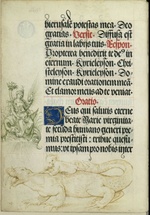 biemale potestas mea. Deo
gratias. Versic. Diffusa est
gratia in labiis tuis. Respon.
Propterea benedixit te deus in
eternum. Kyrieleyson. Chri
steleyson. Kyrieleyson. Do
mine exaudi orationem meã
Et clamor meus ad te veniat
Oratio.
Deus qui salutis eterne
beate Marie virginita
te fecunda humano generi pre
mia prestitisti: tribue quesu
mus: vt ipsam pro nobis inter